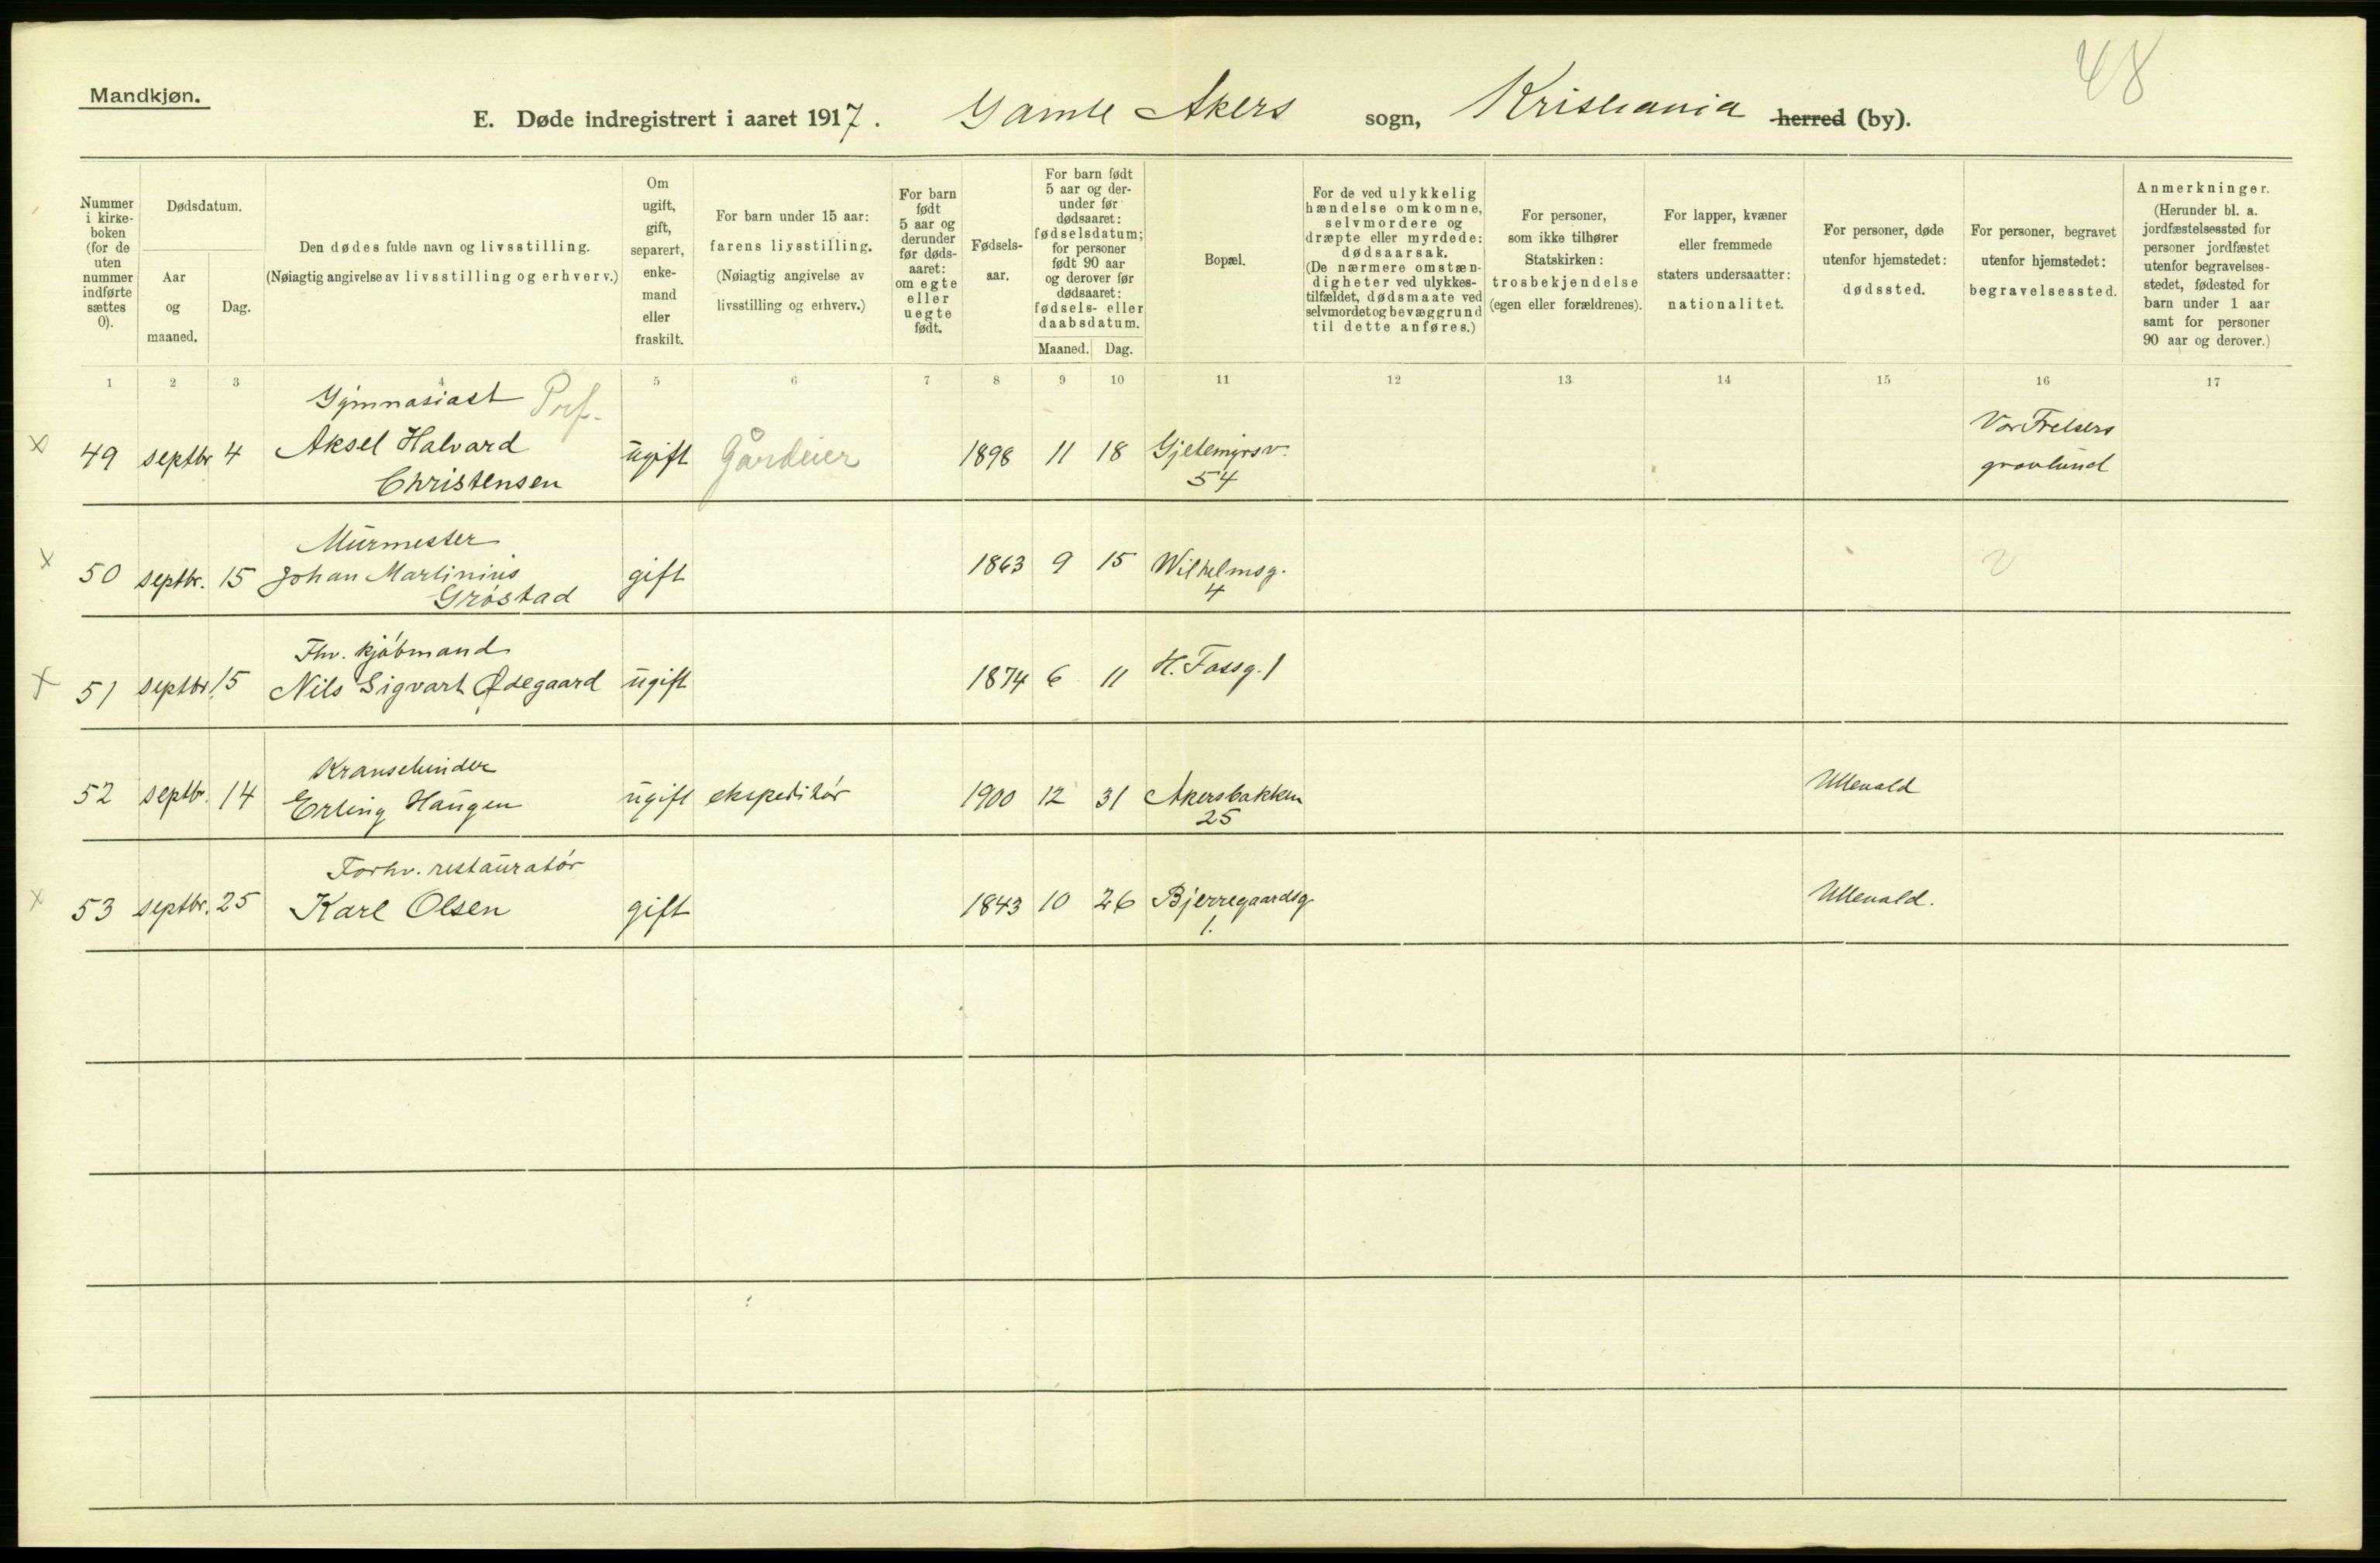 48
Mandkjøn.
E. Døde indregistrert i aaret 1917. Gamle Akers sogn, Kristiania herred (by).
Nummer i kirke-boken (for de uten nummer indførte sættes 0).
Dødsdatum.
Aar og maaned.
Dag.
Den dødes fulde navn og livsstilling.
(Nøiagtig angivelse av livsstilling og erhverv.)
Om ugift, gift, separert, enke-mand eller fraskilt.
For barn under 15 aar:
farens livsstilling.
(Nøiagtig angivelse av
livsstilling og erhverv.)
For barn født 5 aar og derunder før døds-aaret: om egte eller uegte født.
Fødsels-aar.
For barn født 5 aar og der-under før dødsaaret: fødselsdatum; for personer født 90 aar og derover før dødsaaret: fødsels- eller daabsdatum.
Maaned. Dag.
Bopæl.
For de ved ulykkelig hændelse omkomne, selvmordere og dræpte eller myrdede: dødsaarsak.
(De nærmere omstæn-digheter ved ulykkes-tilfældet, dødsmaate ved selvmordet og bevæggrund til dette anføres.)
For personer, som ikke tilhører Statskirken: trosbekjendelse (egen eller forældrenes).
For lapper, kvæner eller fremmede staters undersaatter: nationalitet.
For personer, døde utenfor hjemstedet: dødssted.
For personer, begravet utenfor hjemstedet: begravelsessted.
Anmerkninger.
(Herunder bl. a. jordfæstelsessted for personer jordfæstet utenfor begravelses-stedet, fødested for barn under 1 aar samt for personer 90 aar og derover.)
1 2 3 4 5 6 7 8 9 10 11 12 13 14 15 16 17
Gymnasiast
x 49 septbr 4 Aksel Halvard ugift Gårdeier 1898 11 18 Gjetemyrsv. Vor Frelsers
Christensen 54 gravlund
Murmester
x 50 septbr. 15 Johan Martinius gift 1863 9 15 Wilhelmsg.
Grøstad 4
Fhv. kjøbmand
x 51 septbr. 15 Nils Sigvart Ødegaard ugift 1874 6 11 H. Fossg. 1
52 septbr. 14 Erling Haugen ugift ekspeditør 1900 12 31 Akersbakken Ullevald
25
Forhv. restauratør
x 53 septbr. 25 Karl Olsen gift 1843 10 26 Bjerregaardsg Ullevald.
1.